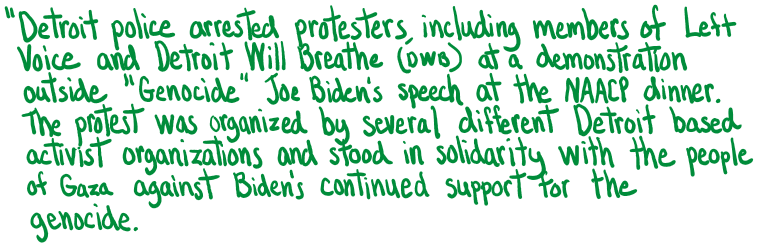 "Detroit police arrested protesters, including members of Left
Voice and Detroit Will Breathe (DWB) at a demonstration
outside "Genocide" Joe Biden's speech at the NAACP dinner.
The protest was organized by several different Detroit based
activist organizations and stood in solidarity with the people
of Gaza against Biden's continued support for the
genocide.